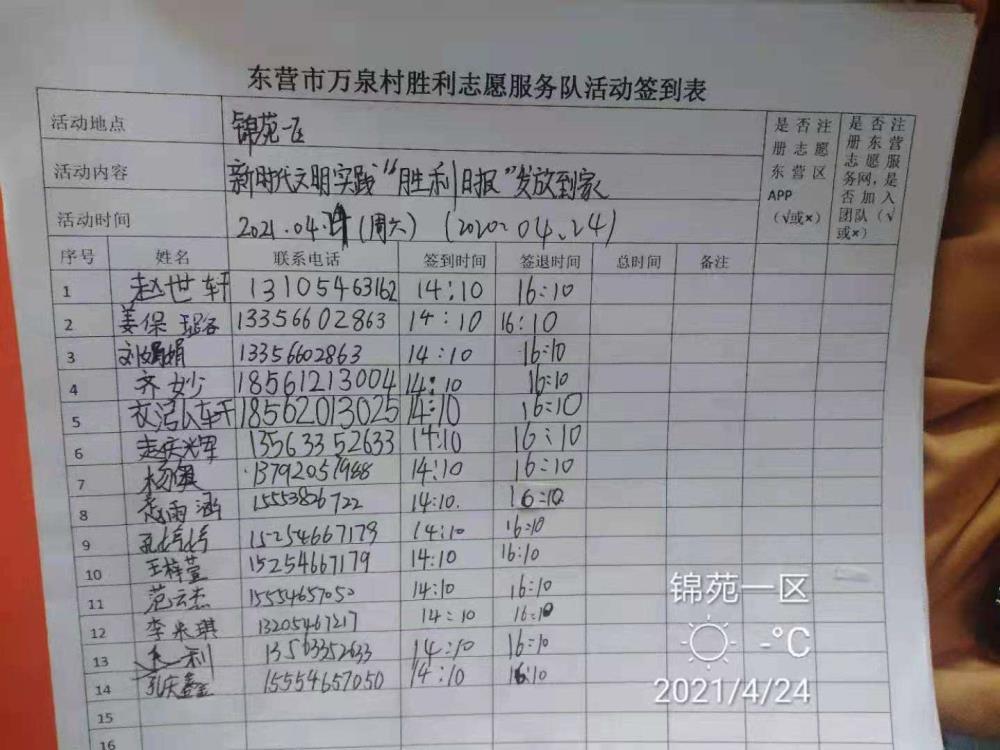 东营市万泉村胜利志愿服务队活动签到表
活动地点 锦苑一区 是否注册志愿东营区APP（√或×） 是否注册东营志愿服务网，是否加入团队（√或×）
活动内容 新时代文明实践"胜利日报"发放到家
活动时间 2021.04.24(周六) (2020.04.24)
序号 姓名 联系电话 签到时间 签退时间 总时间 备注
1 赵世轩 13105463162 14:10 16:10
2 姜保 13356602863 14:10 16:10
3 刘娟娟 13356602863 14:10 16:10
4 齐妙 18561213004 14:10 16:10
5 18562013025 14:10 16:10
6 赵庆光军 13563352633 14:10 16:10
7 13792051988 14:10 16:10
8 赵雨涵 15553826722 14:10. 16:10
9 15254667179 14:10 16:10
10 王梓萱 15254667179 14:10 16:10
11 范云杰 15554657050 14:10 16:10
12 李米琪 13205467217 14:10 16:10
13 利 13563352633 14:10 16:10
14 孔庆鑫 15554657050 14:10 16:10
15
16
锦苑一区
-°C
2021/4/24